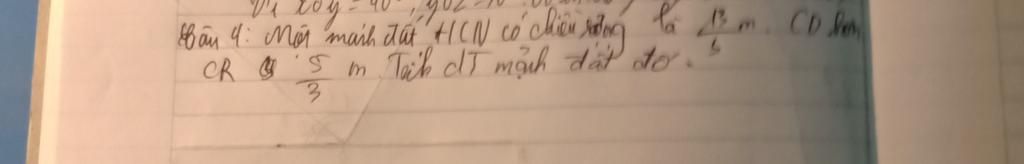 xOy = 40°, yOz =
Câu 4: Một mảnh đất HCN có chiều rộng là 13/5 m. CD hơn
CR 5/3 m. Tính dT mảnh đất đó.